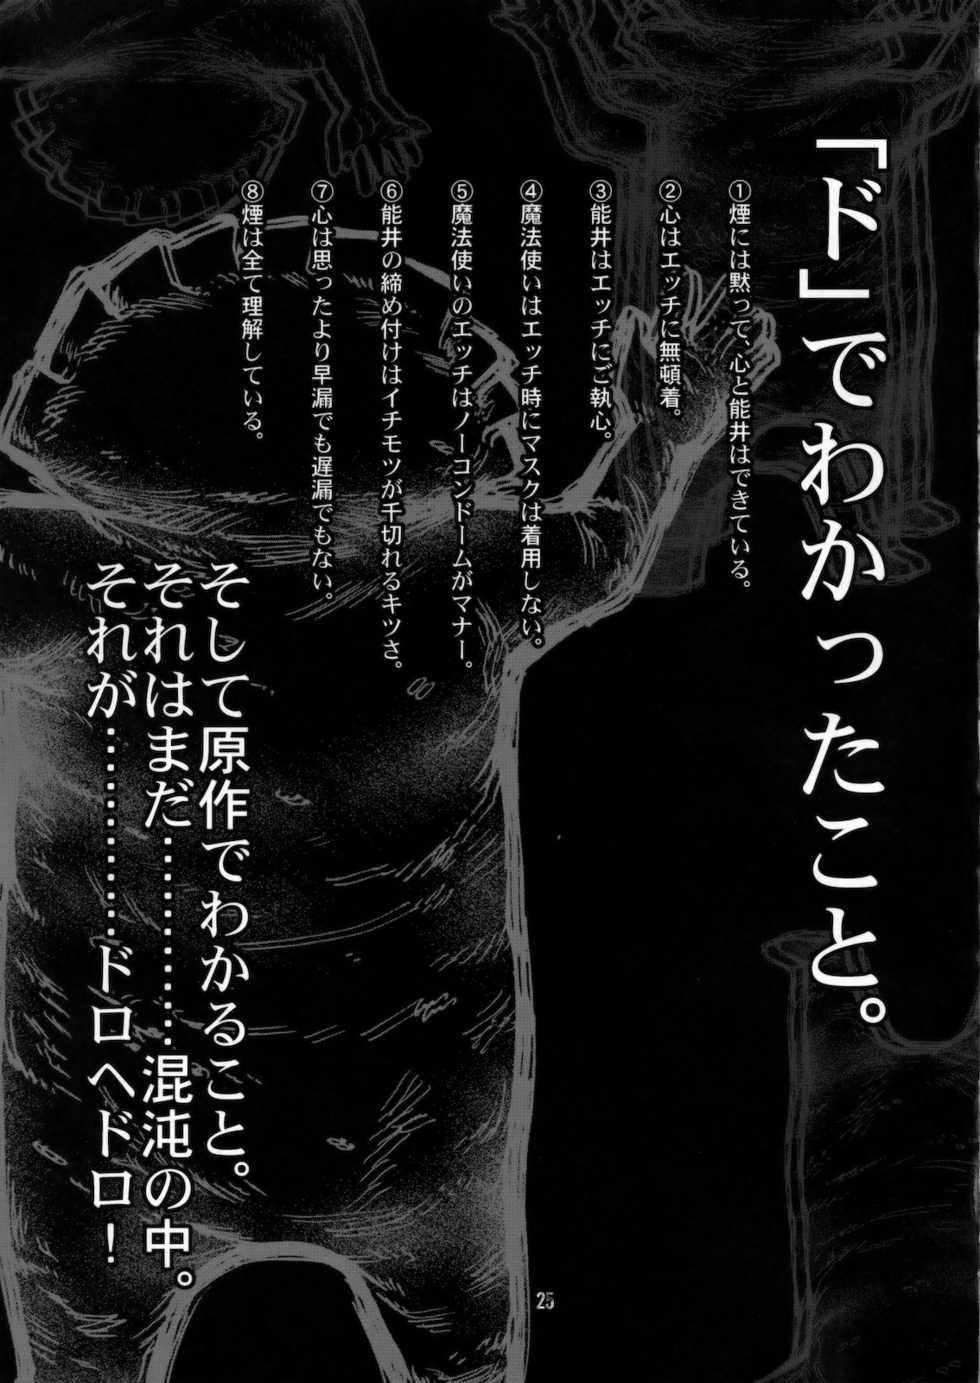 「ド」でわかったこと。
①煙には黙って、心と能井はできている。
②心はエッチに無頓着。
③能井はエッチにご執心。
④魔法使いはエッチ時にマスクは着用しない。
⑤魔法使いのエッチはノーコンドームがマナー。
⑥能井の締め付けはイチモツが千切れるキツさ。
⑦心は思ったより早漏でも遅漏でもない。
⑧煙は全て理解している。
そして原作でわかること。
それはまだ……………混沌の中。
それが……………ドロヘドロ！
25